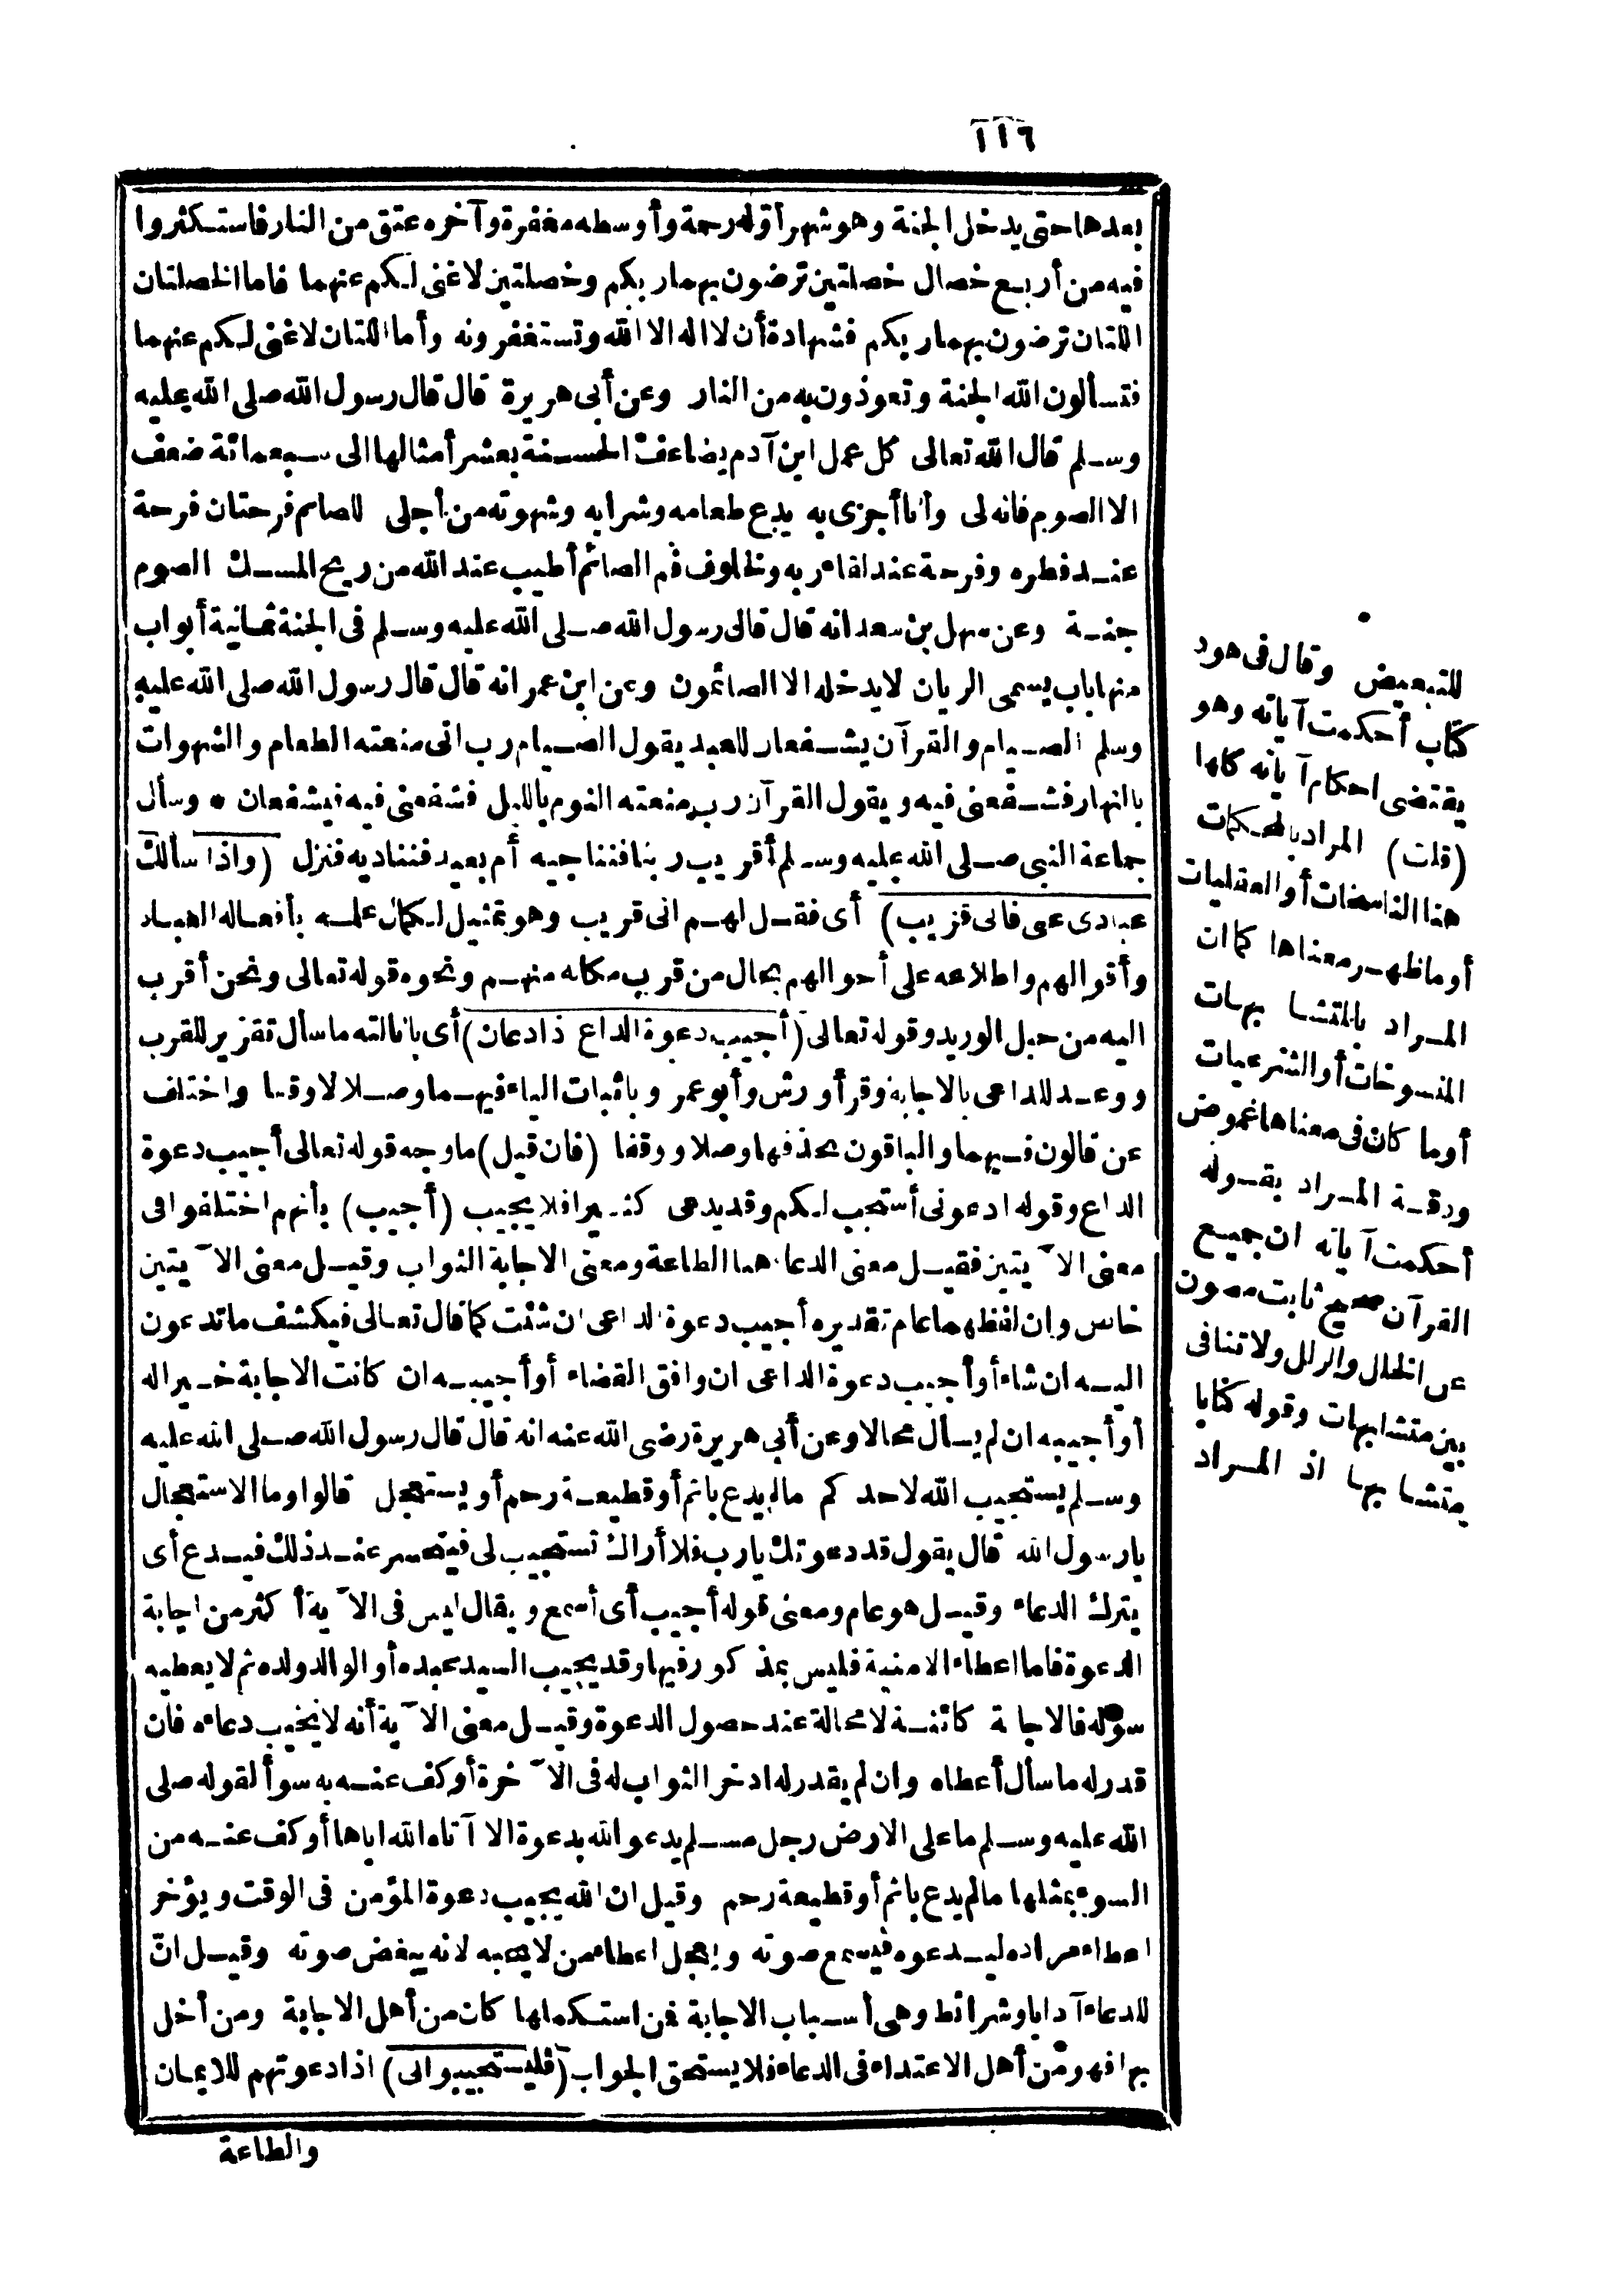 ١١٦
بعدها حتى يدخل الجنة وهو شهر أوله رحمة وأوسطه مغفرة وآخره عتق من النار فاستكثروا
فيه من أربع خصال خصلتين ترضون بهما ربكم وخصلتين لا غنى لكم عنهما فاما الخصلتان
اللتان ترضون بهما ربكم فشهادة أن لا اله الا الله وتستغفرونه وأما اللتان لا غنى لكم عنهما
فتسألون الله الجنة وتعوذون به من النار وعن أبى هريرة قال قال رسول الله صلى الله عليه
وسلم قال الله تعالى كل عمل ابن آدم يضاعف الحسنة بعشر أمثالها الى سبعمائة ضعف
الا الصوم فانه لى وأنا أجزى به يدع طعامه وشرابه وشهوته من أجلى للصائم فرحتان فرحة
عند فطره وفرحة عند لقاء ربه ولخلوف فم الصائم أطيب عند الله من ريح المسك الصوم
جنة وعن سهل بن سعد انه قال قال رسول الله صلى الله عليه وسلم فى الجنة ثمانية أبواب
منها باب يسمى الريان لا يدخله الا الصائمون وعن ابن عمر انه قال قال رسول الله صلى الله عليه
وسلم الصيام والقرآن يشفعان للعبد يقول الصيام رب انى منعته الطعام والشهوات
بالنهار فشفعنى فيه ويقول القرآن رب منعته النوم بالليل فشفعنى فيه فيشفعان * وسأل
جماعة النبى صلى الله عليه وسلم أقريب ربنا فنناجيه أم بعيد فنناديه فنزل (واذا سألك
عبادى عنى فانى قريب) أى فقل لهم انى قريب وهو تمثيل لكمال علمه بأفعال العباد
وأقوالهم واطلاعه على أحوالهم بحال من قرب مكانه منهم ونحوه قوله تعالى ونحن أقرب
اليه من حبل الوريد وقوله تعالى (أجيب دعوة الداع اذا دعان) أى بانالته ما سأل تقرير للقرب
ووعد للداعى بالاجابة وقرأ ورش وأبو عمرو باثبات الياء فيهما وصلا لا وقفا واختلف
عن قالون فيهما والباقون بحذفها وصلا ووقفا (فان قيل) ما وجه قوله تعالى أجيب دعوة
الداع وقوله ادعونى أستجب لكم وقد يدعى كثيرا فلا يجيب (أجيب) بأنهم اختلفوا فى
معنى الآيتين فقيل معنى الدعاء هنا الطاعة ومعنى الاجابة الثواب وقيل معنى الآيتين
خاص وان لفظهما عام تقديره أجيب دعوة الداعى ان شئت كما قال تعالى فيكشف ما تدعون
اليه ان شاء أو أجيب دعوة الداعى ان وافق القضاء أو أجيبه ان كانت الاجابة خيرا له
أو أجيبه ان لم يسأل محالا وعن أبى هريرة رضى الله عنه انه قال قال رسول الله صلى الله عليه
وسلم يستجيب الله لاحدكم ما لم يدع باثم أو قطيعة رحم أو يستعجل قالوا وما الاستعجال
يا رسول الله قال يقول قد دعوتك يا رب فلا أراك تستجيب لى فيتحسر عند ذلك فيدع أى
يترك الدعاء وقيل هو عام ومعنى قوله أجيب أى أسمع ويقال ليس فى الآية أكثر من اجابة
الدعوة فاما اعطاء الامنية فليس بمذكور فيها وقد يجيب السيد عبده أو الوالد ولده ثم لا يعطيه
سؤله فالاجابة كائنة لا محالة عند حصول الدعوة وقيل معنى الآية أنه لا يخيب دعاءه فان
قدر له ما سأل أعطاه وان لم يقدر له ادخر الثواب له فى الآخرة أو كف عنه به سوأ لقوله صلى
الله عليه وسلم ما على الارض رجل مسلم يدعو الله بدعوة الا آتاه الله اياها أو كف عنه من
السوء بمثلها ما لم يدع باثم أو قطيعة رحم وقيل ان الله يجيب دعوة المؤمن فى الوقت ويؤخر
اعطاء مراده ليدعوه فيسمع صوته ويعجل اعطاء من لا يحبه لانه يبغض صوته وقيل انّ
للدعاء آدابا وشرائط وهى أسباب الاجابة فمن استكملها كان من أهل الاجابة ومن أخل
بها فهو من أهل الاعتداء فى الدعاء فلا يستحق الجواب (فليستجيبوا لى) اذا دعوتهم للايمان
والطاعة
للتبعيض وقال فى هود
كتاب أحكمت آياته وهو
يقتضى احكام آياته كلها
(قلت) المراد بالمحكمات
هنا الناسخات أو العقليات
أو ما ظهر معناها كما ان
المراد بالمتشابهات
المنسوخات أو الشرعيات
أو ما كان فى معناها غموض
ودقة المراد بقوله
أحكمت آياته ان جميع
القرآن صحيح ثابت مصون
عن الخلل والزلل ولا تنافى
بين متشابهات وقوله كتابا
متشابها اذ المراد